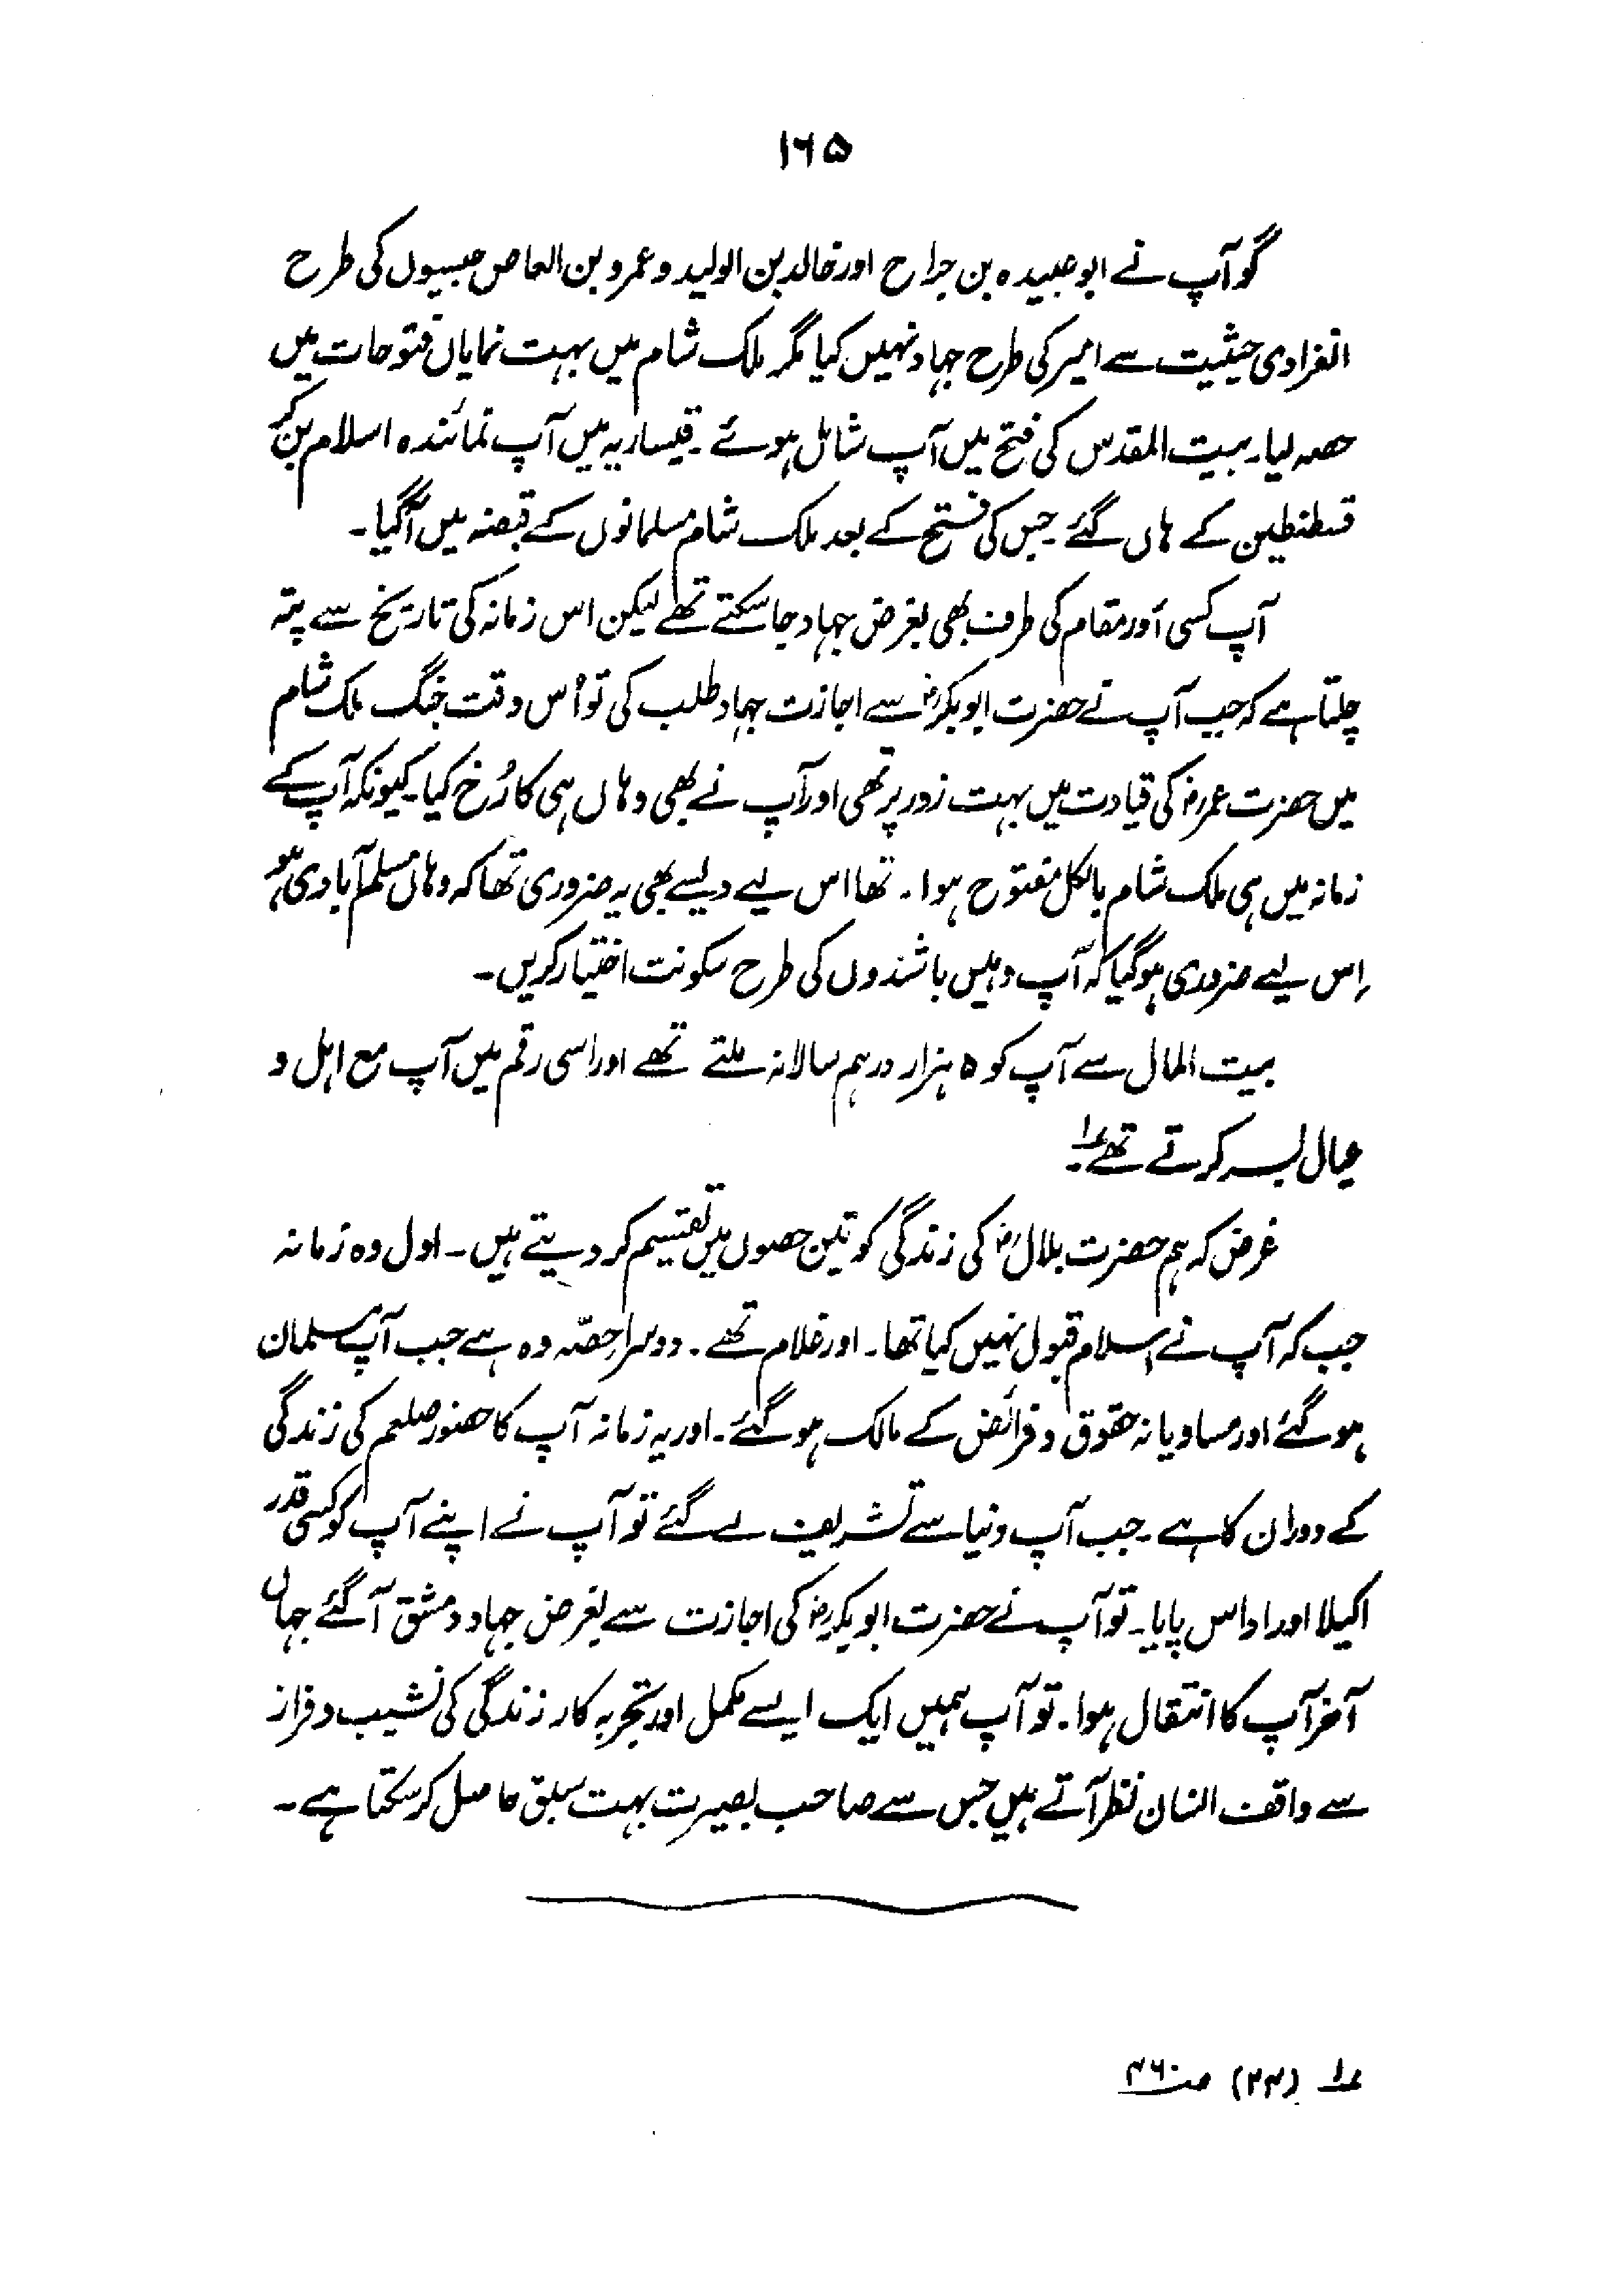 ۱۶۵
گو آپ نے ابو عبیدہ بن جراح اور خالد بن الولید و عمرو بن العاص جیسوں کی طرح
انفرادی حیثیت سے امیر کی طرح جہاد نہیں کیا مگر ملک شام میں بہت نمایاں فتوحات میں
حصہ لیا۔ بیت المقدس کی فتح میں آپ شامل ہوئے۔ قیساریہ میں آپ نمائندہ اسلام بن کر
قسطنطین کے ہاں گئے۔ جس کی فتح کے بعد ملک شام مسلمانوں کے قبضہ میں آگیا۔
آپ کسی اَور مقام کی طرف بھی بغرض جہاد جا سکتے تھے لیکن اس زمانہ کی تاریخ سے پتہ
چلتا ہے کہ جب آپ نے حضرت ابوبکرؓ سے اجازت جہاد طلب کی تو اُس وقت جنگ ملک شام
میں حضرت عمرؓ کی قیادت میں بہت زور پر تھی اور آپ نے بھی وہاں ہی کا رُخ کیا۔ کیونکہ آپ کے
زمانہ میں ہی ملک شام بالکل مفتوح ہوا۔ تھا اس لیے ویسے بھی یہ ضروری تھا کہ وہاں مسلم آبادی ہو
اِس لیے ضروری ہوگیا کہ آپ وہیں باشندوں کی طرح سکونت اختیار کریں۔
بیت المال سے آپ کو ۵ ہزار درہم سالانہ ملتے تھے اور اسی رقم میں آپ مع اہل و
عیال بسر کرتے تھے۔ ؏۱
غرض کہ ہم حضرت بلالؓ کی زندگی کو تین حصوں میں تقسیم کر دیتے ہیں۔ اول وہ زمانہ
جب کہ آپ نے اسلام قبول نہیں کیا تھا۔ اور غلام تھے۔ دوسرا حصّہ وہ ہے جب آپ مسلمان
ہو گئے اور مساویانہ حقوق و فرائض کے مالک ہو گئے۔ اور یہ زمانہ آپ کا حضور صلعم کی زندگی
کے دوران کا ہے۔ جب آپ دنیا سے تشریف لے گئے تو آپ نے اپنے آپ کو کسی قدر
اکیلا اور اداس پایا۔ تو آپ نے حضرت ابوبکرؓ کی اجازت سے بغرض جہاد دمشق آگئے جہاں
آخر آپ کا انتقال ہوا۔ تو آپ ہمیں ایک ایسے مکمل اور تجربہ کار زندگی کی نشیب و فراز
سے واقف انسان نظر آتے ہیں جس سے صاحب بصیرت بہت سبق حاصل کر سکتا ہے۔
؏۱ (۲۳) صـ ۴۶۰